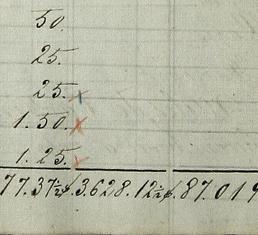 50.
25.
25. x
1.50. x
1.25. x
77.37½ 3.628.12½ 87.019